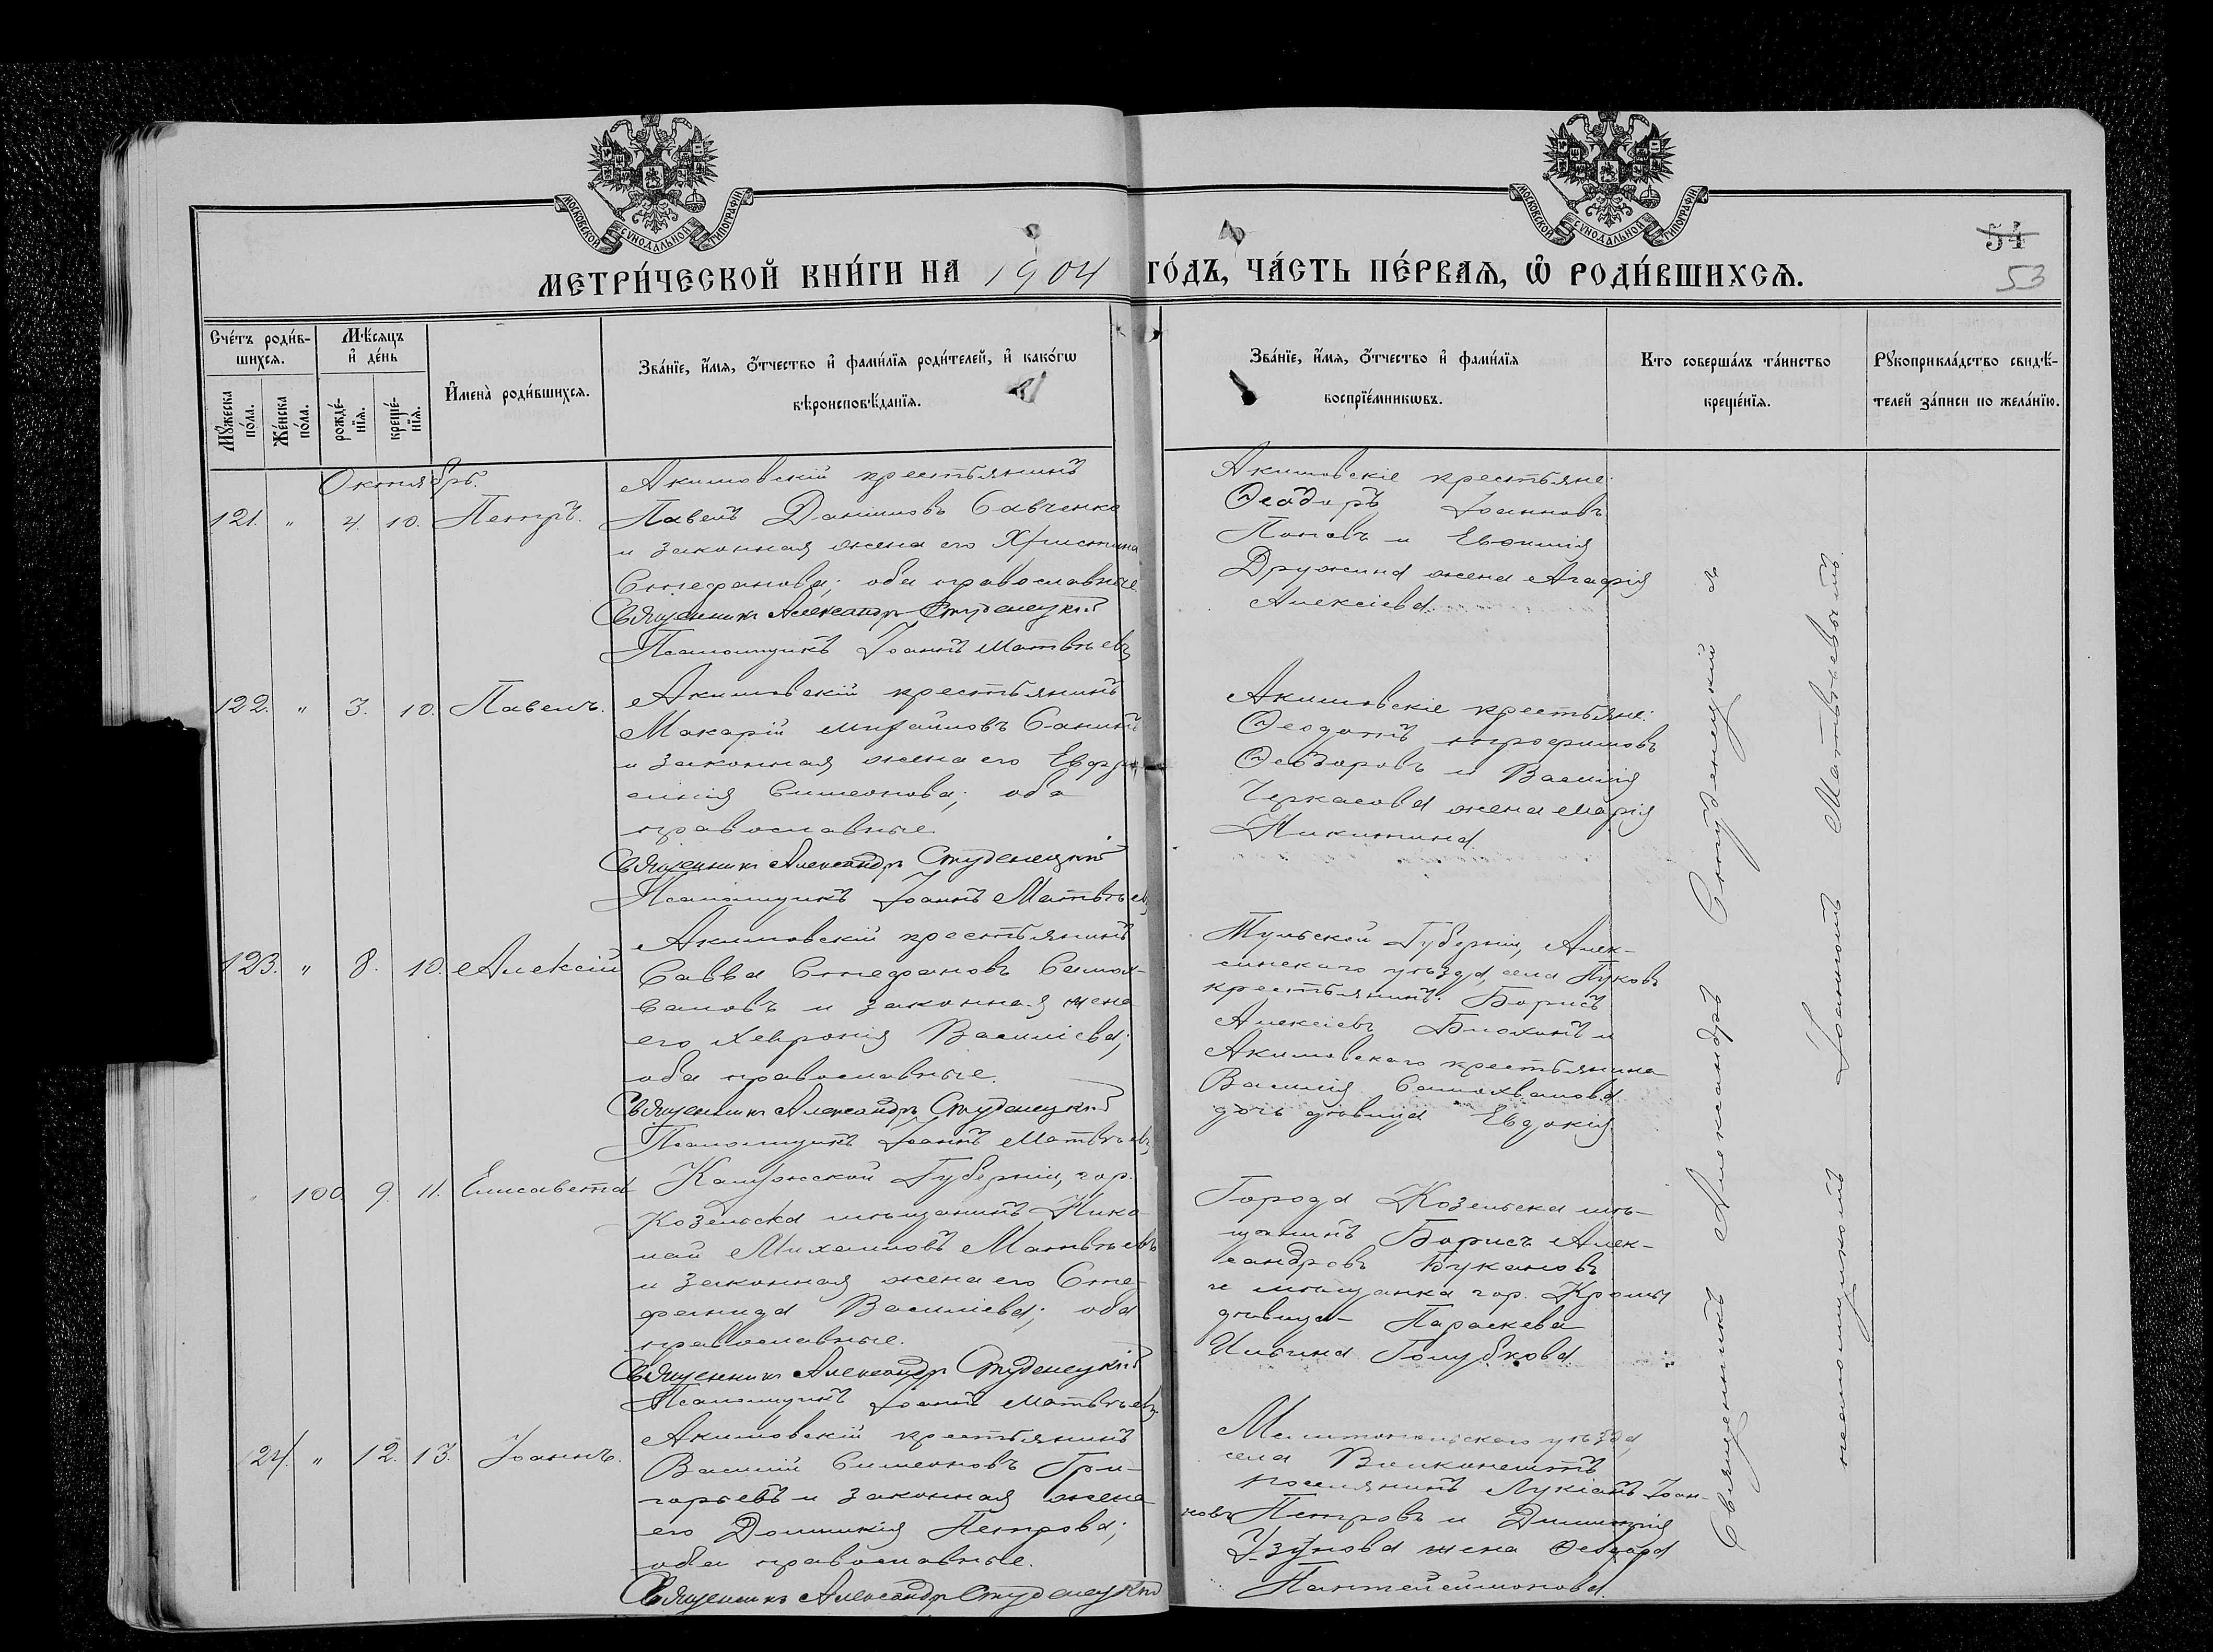 МОСКОВСКОЙ СѴНОДАЛЬНОЙ ТИПОГРАФІИ
МОСКОВСКОЙ СѴНОДАЛЬНОЙ ТИПОГРАФІИ
54
53
МЕТРИ́ЧЕСКОЙ КНИ́ГИ НА 1904 ГО́ДЪ, ЧА́СТЬ ПЕ́РВАѦ, Ѡ҆ РОДИ́ВШИХСѦ.
Сче́тъ роди́в-
шихсѧ.
Мꙋ́жеска по́ла.
Же́нска по́ла.
Мѣ́сѧцъ
и҆ де́нь
рожде́-
нїѧ.
креще́-
нїѧ.
И҆мена̀ роди́вшихсѧ.
Зва́нїе, и҆́мѧ, ѻ҆́тчество и҆ фами́лїѧ роди́телей, и҆ како́гѡ
вѣроисповѣ́данїѧ.
Зва́нїе, и҆́мѧ, ѻ҆́тчество и҆ фами́лїѧ
воспрїе́мникѡвъ.
Кто соверша́лъ та́инство
креще́нїѧ.
Рꙋкоприкла́дство свидѣ́-
телей за́писи по жела́нїю.
Октябрь.
121. " 4. 10. Петръ.
Акимовскій крестьянинъ
Павелъ Даніиловъ Савченко
и законная жена его Христина
Стефанова; оба православные
Священникъ Александръ Студенецкій
Псаломщикъ Іоаннъ Матвѣевъ
Акимовскіе крестьяне:
Ѳеодоръ Іоанновъ
Поповъ и Евѳимія
Дружина жена Агафія
Алексіева.
122. " 3. 10. Павелъ.
Акимовскій крестьянинъ
Макарій Михаиловъ Санинъ
и законная жена его Евфро-
синія Симеонова; оба
православные.
Священникъ Александръ Студенецкій
Псаломщикъ Іоаннъ Матвѣевъ
Акимовскіе крестьяне:
Ѳеодотъ Трофимовъ
Ѳеодоровъ и Василія
Черкасова жена Марія
Никитина.
123. " 8. 10. Алексій
Акимовскій крестьянинъ
Савва Стефановъ Самой-
ловъ и законная жена
его Хевронія Василіева;
оба православные.
Священникъ Александръ Студенецкій
Псаломщикъ Іоаннъ Матвѣевъ
Тульской Губерніи, Алек-
синскаго уѣзда, села
крестьянинъ Борисъ
Алексіевъ Блохинъ и
Акимовскаго крестьянина
Василія Самохвалова
дочь дѣвица Евдокія
" 100. 9. 11. Елисавета
Калужской Губерніи, гор.
Козельска мѣщанинъ Нико-
лай Михаиловъ Матвѣевъ
и законная жена его Сте-
фанида Василіева; оба
православные.
Священникъ Александръ Студенецкій
Псаломщикъ Іоаннъ Матвѣевъ
Города Козельска мѣ-
щанинъ Борисъ Алек-
сандровъ Букановъ
и мѣщанка гор. Кромы
дѣвица Параскева
Ильина Голубкова.
124. " 12. 13. Іоаннъ.
Акимовскій крестьянинъ
Василій Симеоновъ Гри-
горьевъ и законная жена
его Домникія Петрова;
оба православные.
Священникъ Александръ Студенецкій
Мелитопольскаго уѣзда,
села
поселянинъ Лукіанъ Іоан-
новъ Петровъ и Димитрія
Узунова жена Ѳеодора
Пантелеимонова.
Священникъ Александръ Студенецкій съ
псаломщикомъ Іоанномъ Матвѣевымъ.